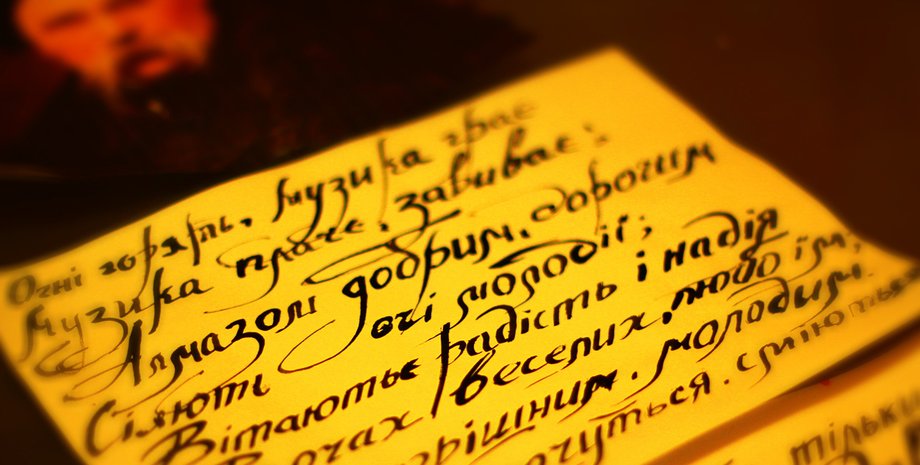 Огні горять, музика грає
Музика плаче, завиває;
Алмазом добрим, дорогим
Сіяють очі молодії;
Вітається радість і надія
В очах веселих, любо їм,
Очам негрішним, молодим.
регочуться, сміються
тільки